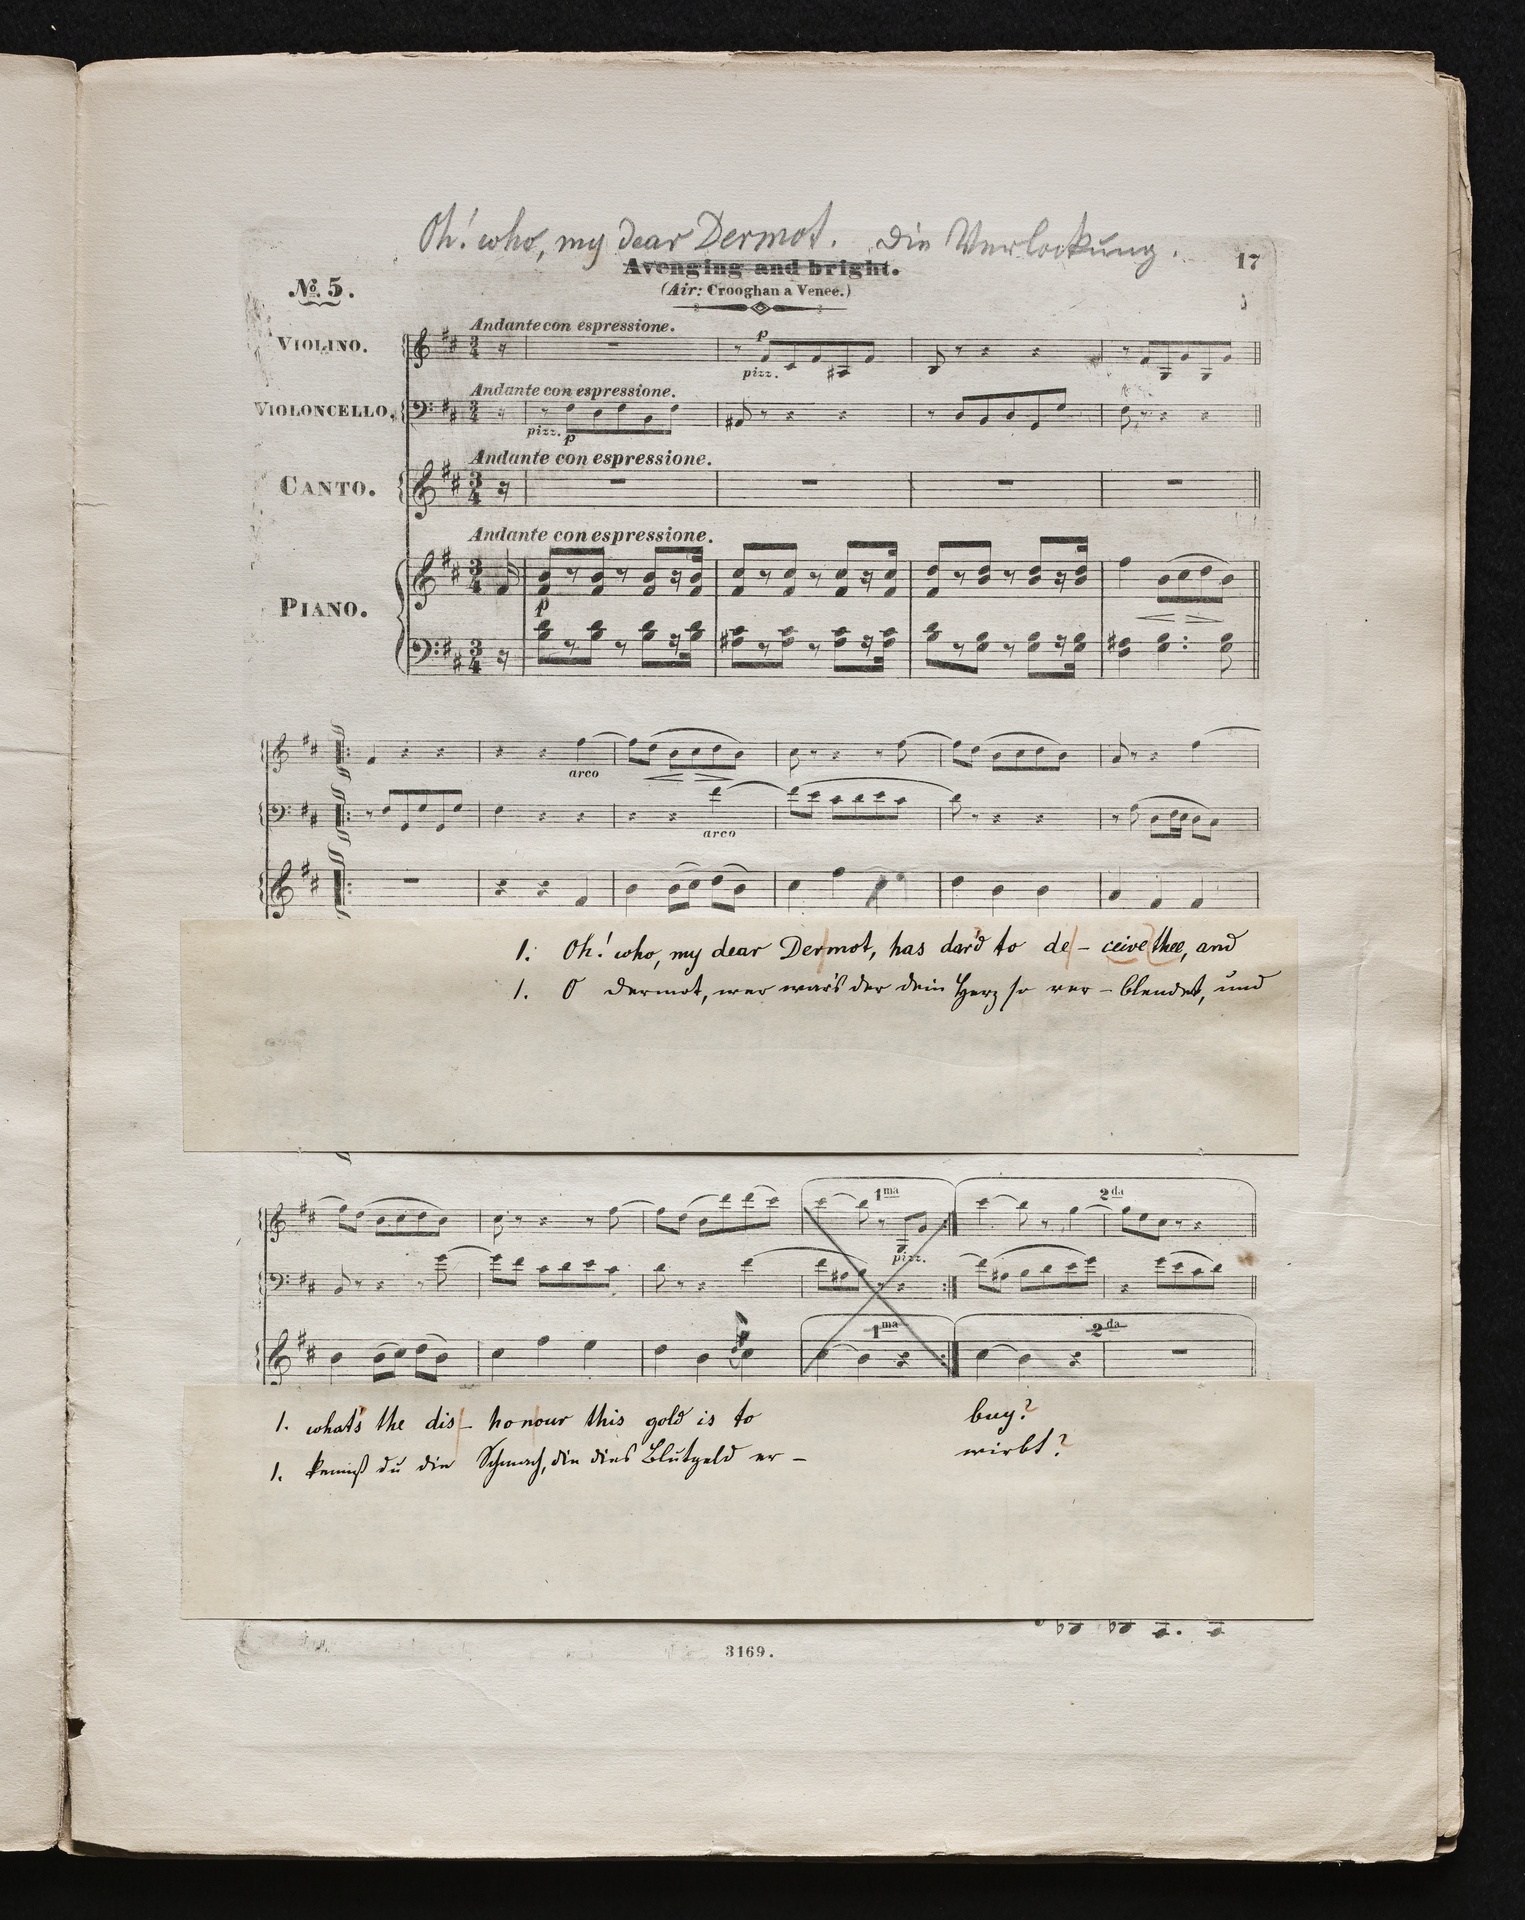 Oh! who, my dear Dermot. Die Verlockung.
Avenging and bright.
17
No. 5.
(Air: Crooghan a Venee.)
Andante con espressione.
VIOLINO.
p
pizz.
Andante con espressione.
VIOLONCELLO.
pizz. p
Andante con espressione.
CANTO.
Andante con espressione.
PIANO.
p
arco
arco
1. Oh! who, my dear Dermot, has dar'd to de- ceive thee, and
1. O Dermot, wer war's der dein Herz so ver- blendet, und
1ma 2da
pizz.
1ma 2da
1. what's the dis- honour this gold is to buy?
1. kennst du die Schmach, die dies Blutgeld er- wirbt?
3169.